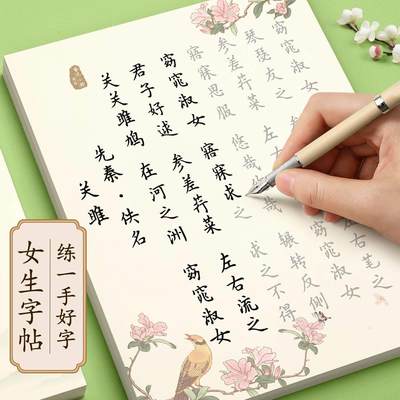 关雎
先秦·佚名
关关雎鸠
在河之洲
君子好逑
窈窕淑女
参差荇菜
左右流之
窈窕淑女
寤寐求之
求之不得
寤寐思服
悠哉
辗转反侧
参差荇菜
左
琴瑟友之
窈窕淑女
左右笔之
练一手好字
女生字帖